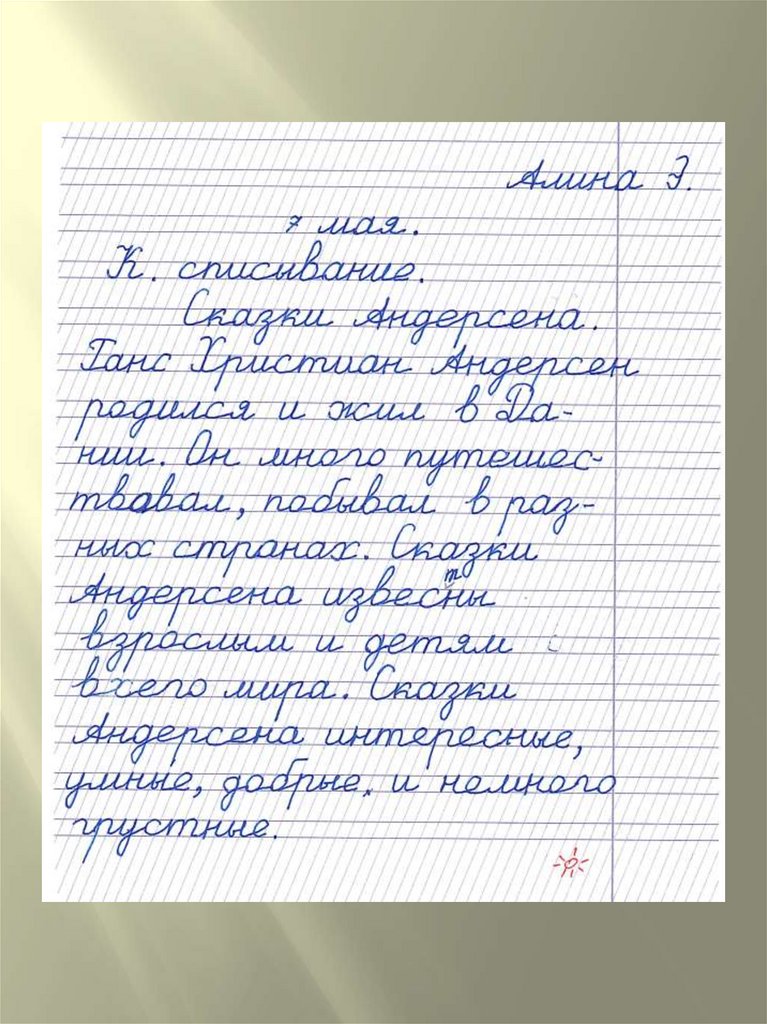 Алина Э.
7 мая.
К. списывание.
Сказки Андерсена.
Ганс Христиан Андерсен
родился и жил в Да-
нии. Он много путешес-
твовал, побывал в раз-
ных странах. Сказки
Андерсена известны
взрослым и детям с
всего мира. Сказки
Андерсена интересные,
умные, добрые, и немного
грустные.